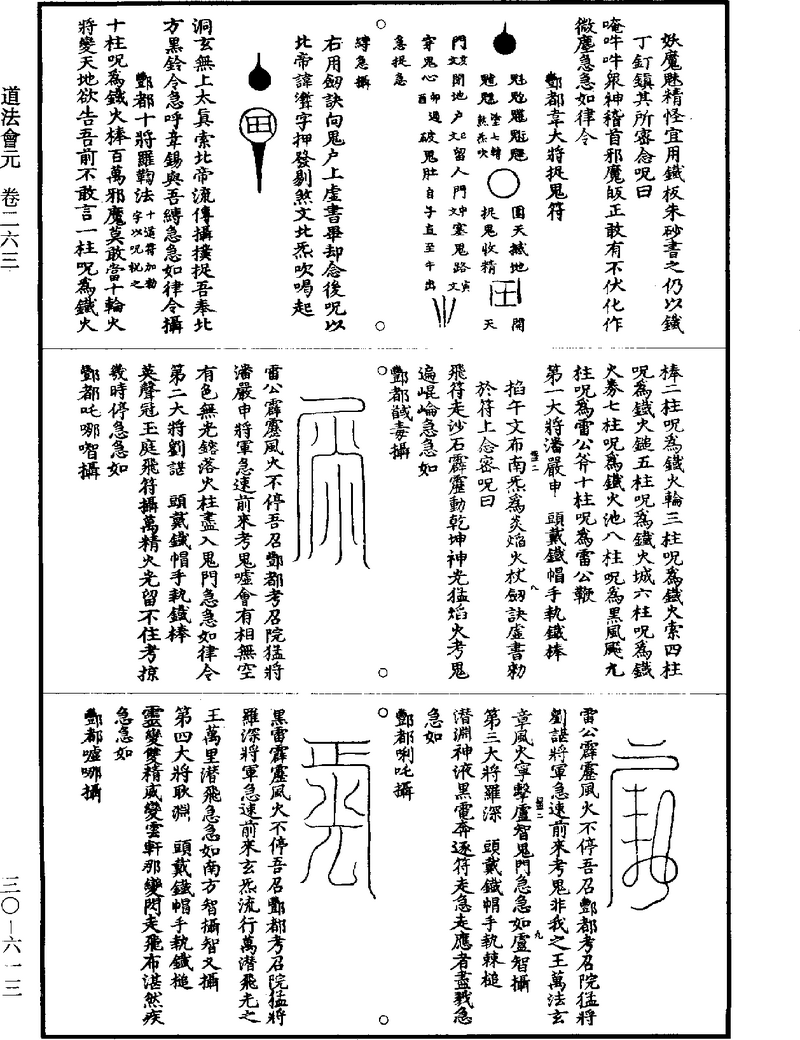 道法會元　卷二六三
妖魔魅精怪宜用鐵板朱砂書之仍以鐵
丁釘鎮其所密念呪曰
唵吽吽眾神稽首邪魔皈正敢有不伏化作
微塵急急如律令
酆都韋大將捉鬼符
圓天撼地
捉鬼收精
開
天
門閉地戶留人門塞鬼路
穿鬼心破鬼肚自子直至午出
急捉急
縛急攝
右用劒訣向鬼戶上虛書畢却念後呪以
比帝諱灣字押發剔煞文北炁吹喝起
田
洞玄無上太真索北帝流傳攝摸捉吾奉北
方黑鈴令急呼韋錫與吾縛急急如律令攝
酆都十將羅鞫法十道符加勅字以呪祝之
十柱呪為鐵火棒百萬邪魔莫敢當十輪火
將變天地欲告吾前不敢言一柱呪為鐵火
棒二柱呪為鐵火輪三柱呪為鐵火索四柱
呪為鐵火鎚五柱呪為鐵火城六柱呪為鐵
火券七柱呪為鐵火池八柱呪為黑風颺九
柱呪為雷公斧十柱呪為雷公鞭
第一大將潘嚴申　頭戴鐵帽手執鐵棒
掐午文布南炁為炎焰火杖劒訣虛書勑
於符上念密呪曰
飛符走沙石霹靂動乾坤神光猛焰火考鬼
遍崐崘急急如
酆都馘毒攝
雷公霹靂風火不停吾召酆都考召院猛將
潘嚴申將軍急速前來考鬼噓會有相無空
有色無光鎔落火柱盡入鬼門急急如律令
第二大將劉諶　頭戴鐵帽手執鐵棒
英聲冠玉庭飛符攝萬精火光留不住考掠
幾時停急急如
酆都吒哪智攝
雷公霹靂風火不停吾召酆都考召院猛將
劉諶將軍急速前來考鬼非我之王萬法玄
章風火寧擊盧智鬼門急急如盧智攝
第三大將羅深　頭戴鐵帽手執棘槌
潛淵神液黑電奔逐符走急走應者盡戮急
急如
酆都唎吒攝
黑雷霹靂風火不停吾召酆都考召院猛將
羅深將軍急速前來玄炁流行萬潛飛光之
王萬里潛飛急急如南方智攝智又攝
第四大將耿淵　頭戴鐵帽手執鐵槌
靈變雙精威變雲軒那變閃走飛布湛然疾
急急如
酆都噓哪攝
三〇—六一三